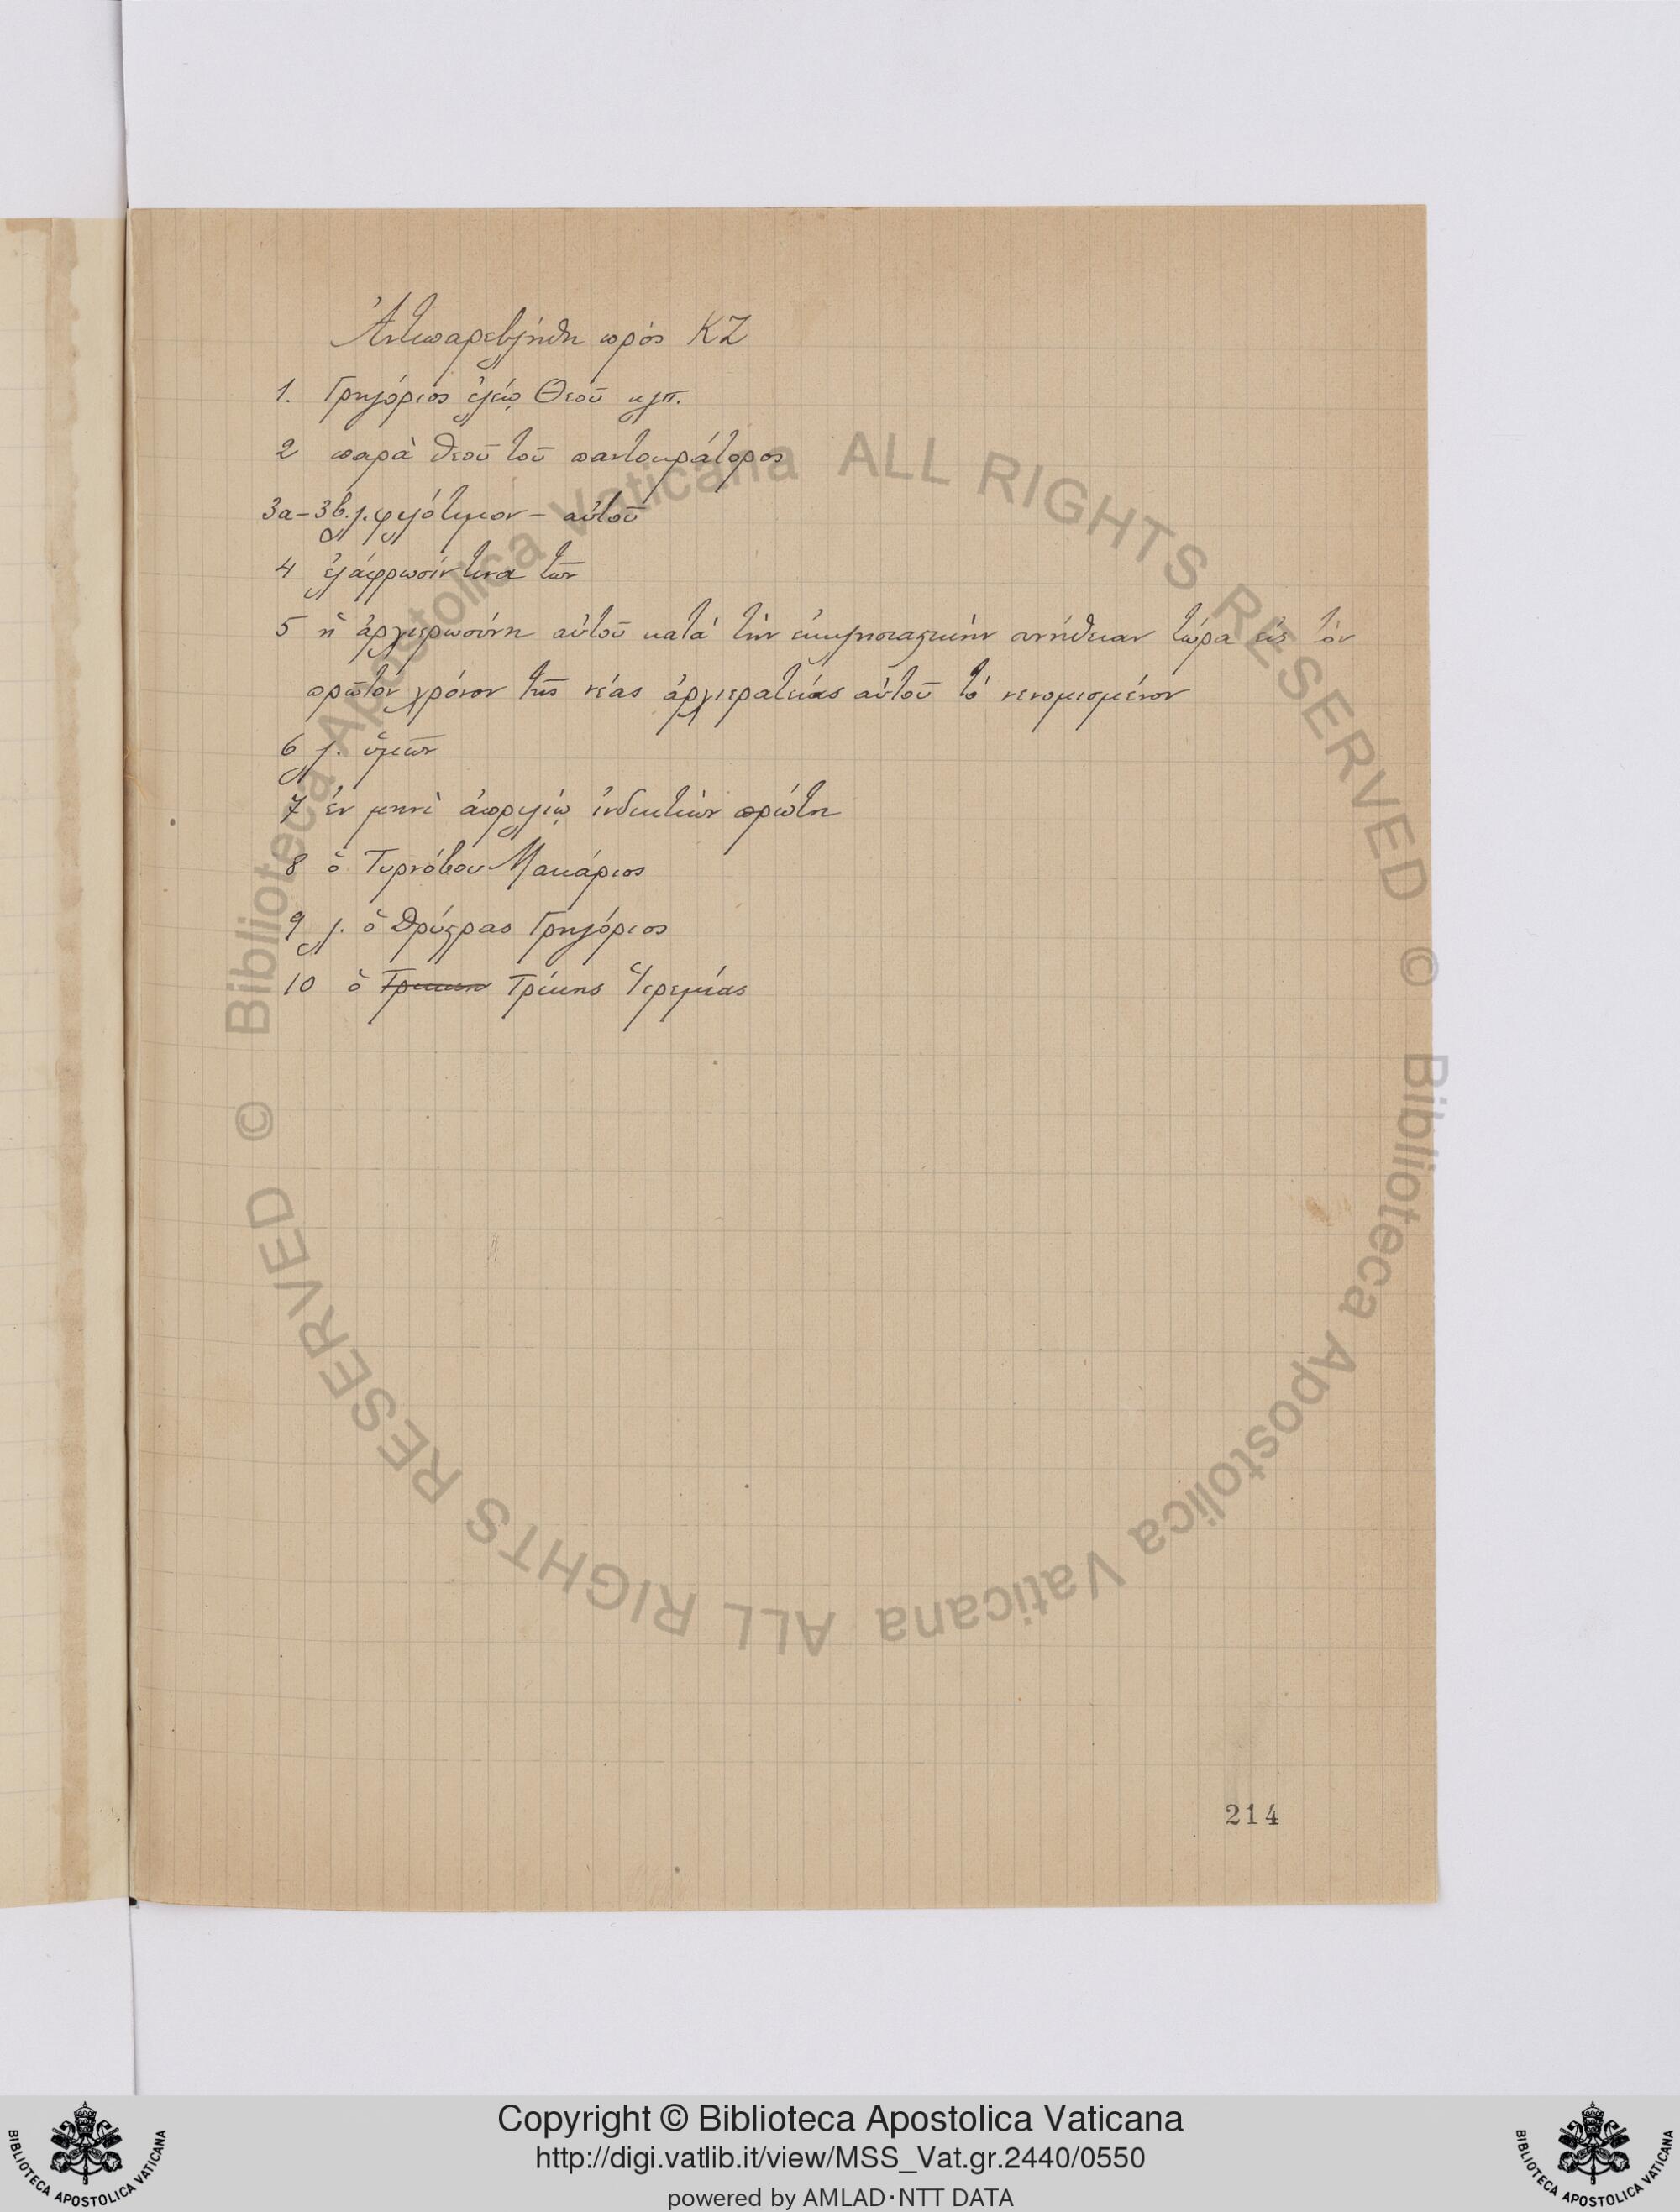 Ἀντιπαρεβλήθη πρὸς ΚΖ
1. Γρηγόριος ἐλέῳ Θεοῦ κλπ.
2 παρὰ θεοῦ τοῦ παντοκράτορος
3α – 3β. λ. φιλότιμον – αὐτοῦ
4 ἐλάφρωσίν τινα τῶν
5 ἡ ἀρχιερωσύνη αὐτοῦ κατὰ τὴν ἐκκλησιαστικὴν συνήθειαν τώρα εἰς τὸν
πρῶτον χρόνον τῆς νέας ἀρχιερατείας αὐτοῦ τὸ νενομισμένον
6 λ. ὑμῶν
7 ἐν μηνὶ ἀπριλίῳ ἰνδικτιὼν πρώτη
8 ὁ Τυρνόβου Μακάριος
9 λ. ὁ Θρύστρας Γρηγόριος
10 ὁ Τρίκκης Ἱερεμίας
214
© Biblioteca Apostolica Vaticana ALL RIGHTS RESERVED
© Biblioteca Apostolica Vaticana ALL RIGHTS RESERVED
Copyright © Biblioteca Apostolica Vaticana
http://digi.vatlib.it/view/MSS_Vat.gr.2440/0550
powered by AMLAD·NTT DATA
BIBLIOTECA APOSTOLICA VATICANA
BIBLIOTECA APOSTOLICA VATICANA